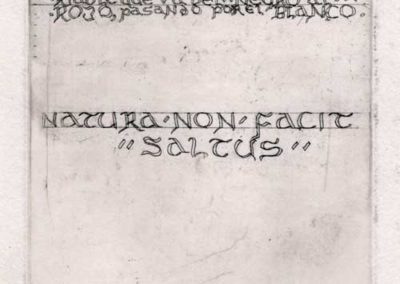 que
·ROJO, pasando por el BLANCO·
NATURA·NON·FACIT
"SALTUS"